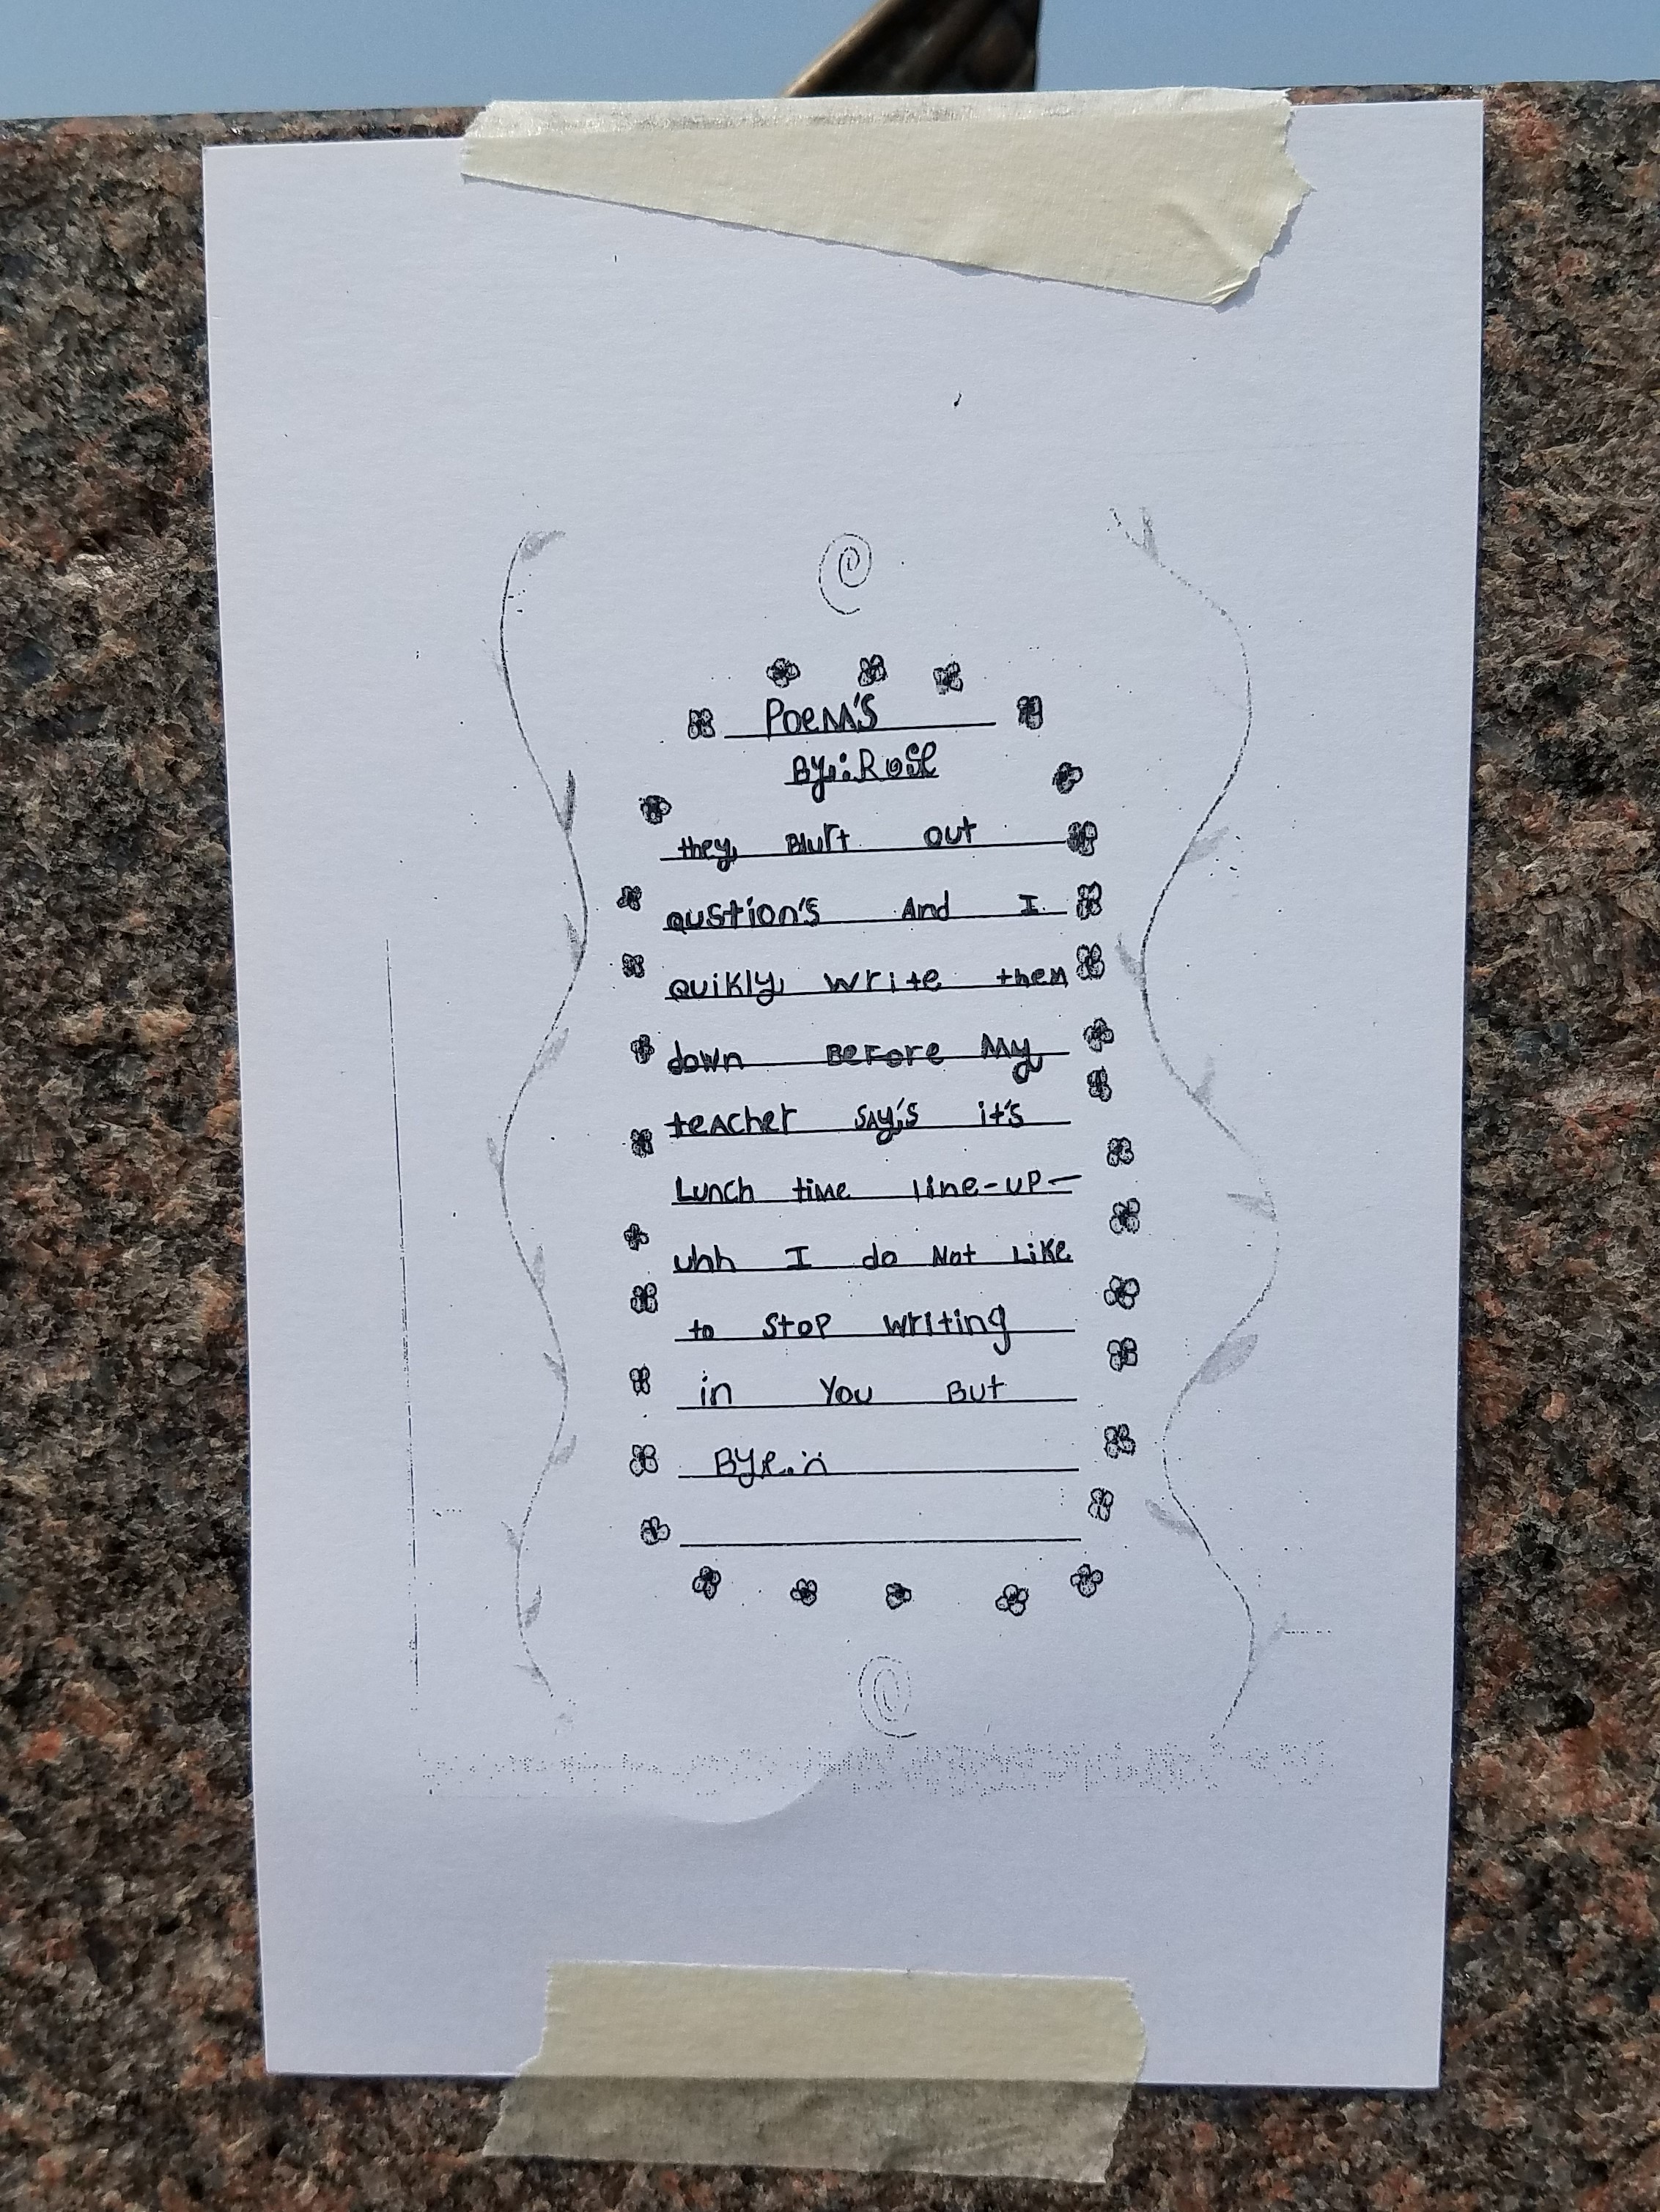 POEM'S
BY: ROSE
they Blurt out
qustion's And I
quikly write them
down BeFore My
teAcher SAY'S it's
Lunch time line-up-
uhh I do Not Like
to stop writing
in You But
BYe. ∴